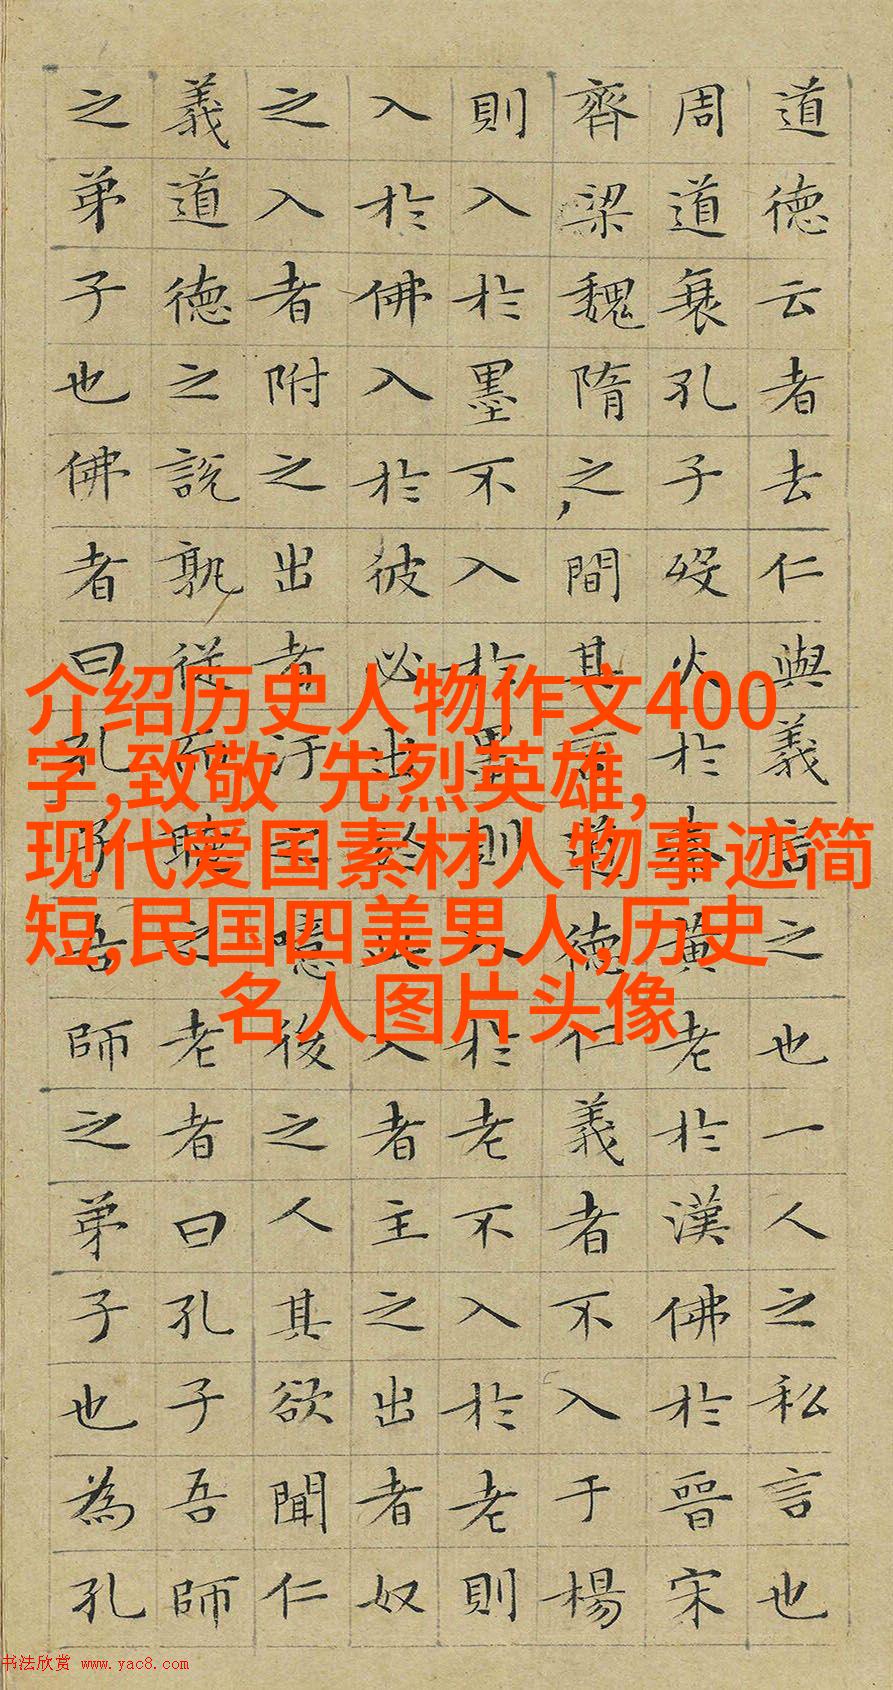 道德云者去仁與義言之也一人之私言也
周道衰孔子歿火於秦黃老於漢佛於晉宋
齊梁魏隋之間其言道德仁義者不入于楊
則入於墨不入於墨則入於老不入於老則
入於佛入於彼必出於此入者主之出者奴
之入者附之出者汙之噫後之人其欲聞仁
義道德之說孰從而聽之老者曰孔子吾師
之弟子也佛者曰孔子吾師之弟子也為孔
介绍历史人物作文400
字,致敬 先烈英雄,
现代爱国素材人物事迹简
短,民国四美男人,历史
名人图片头像
书法欣赏 www.yac8.com